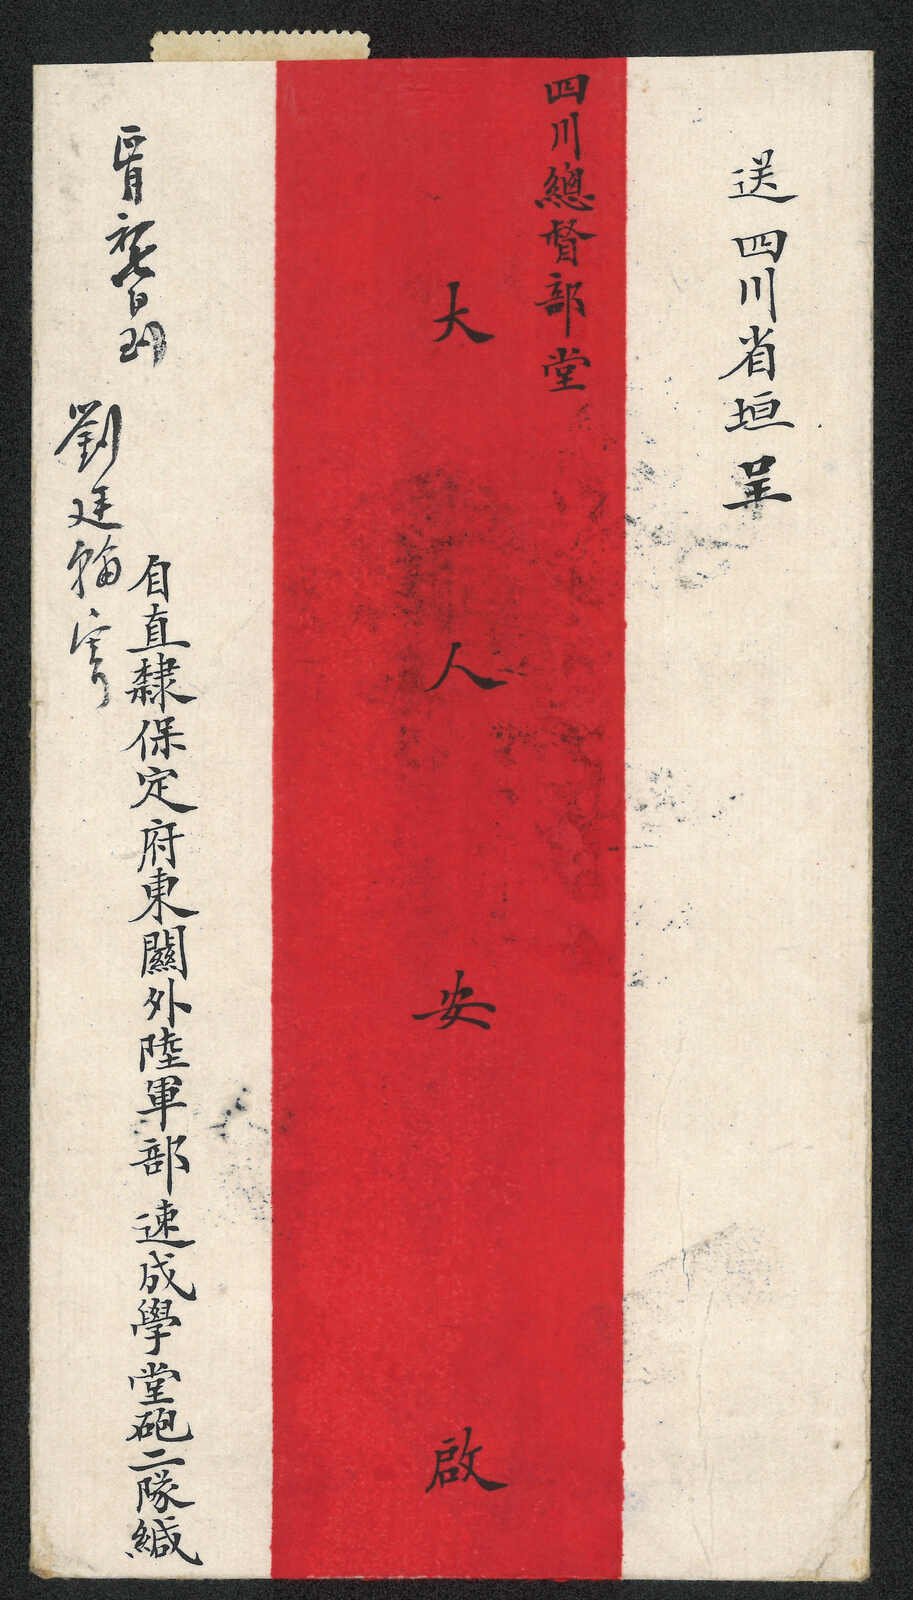 送四川省垣呈
四川總督部堂
大人安啟
自直隸保定府東關外陸軍部速成學堂砲二隊緘
劉廷翰寄
初七日到